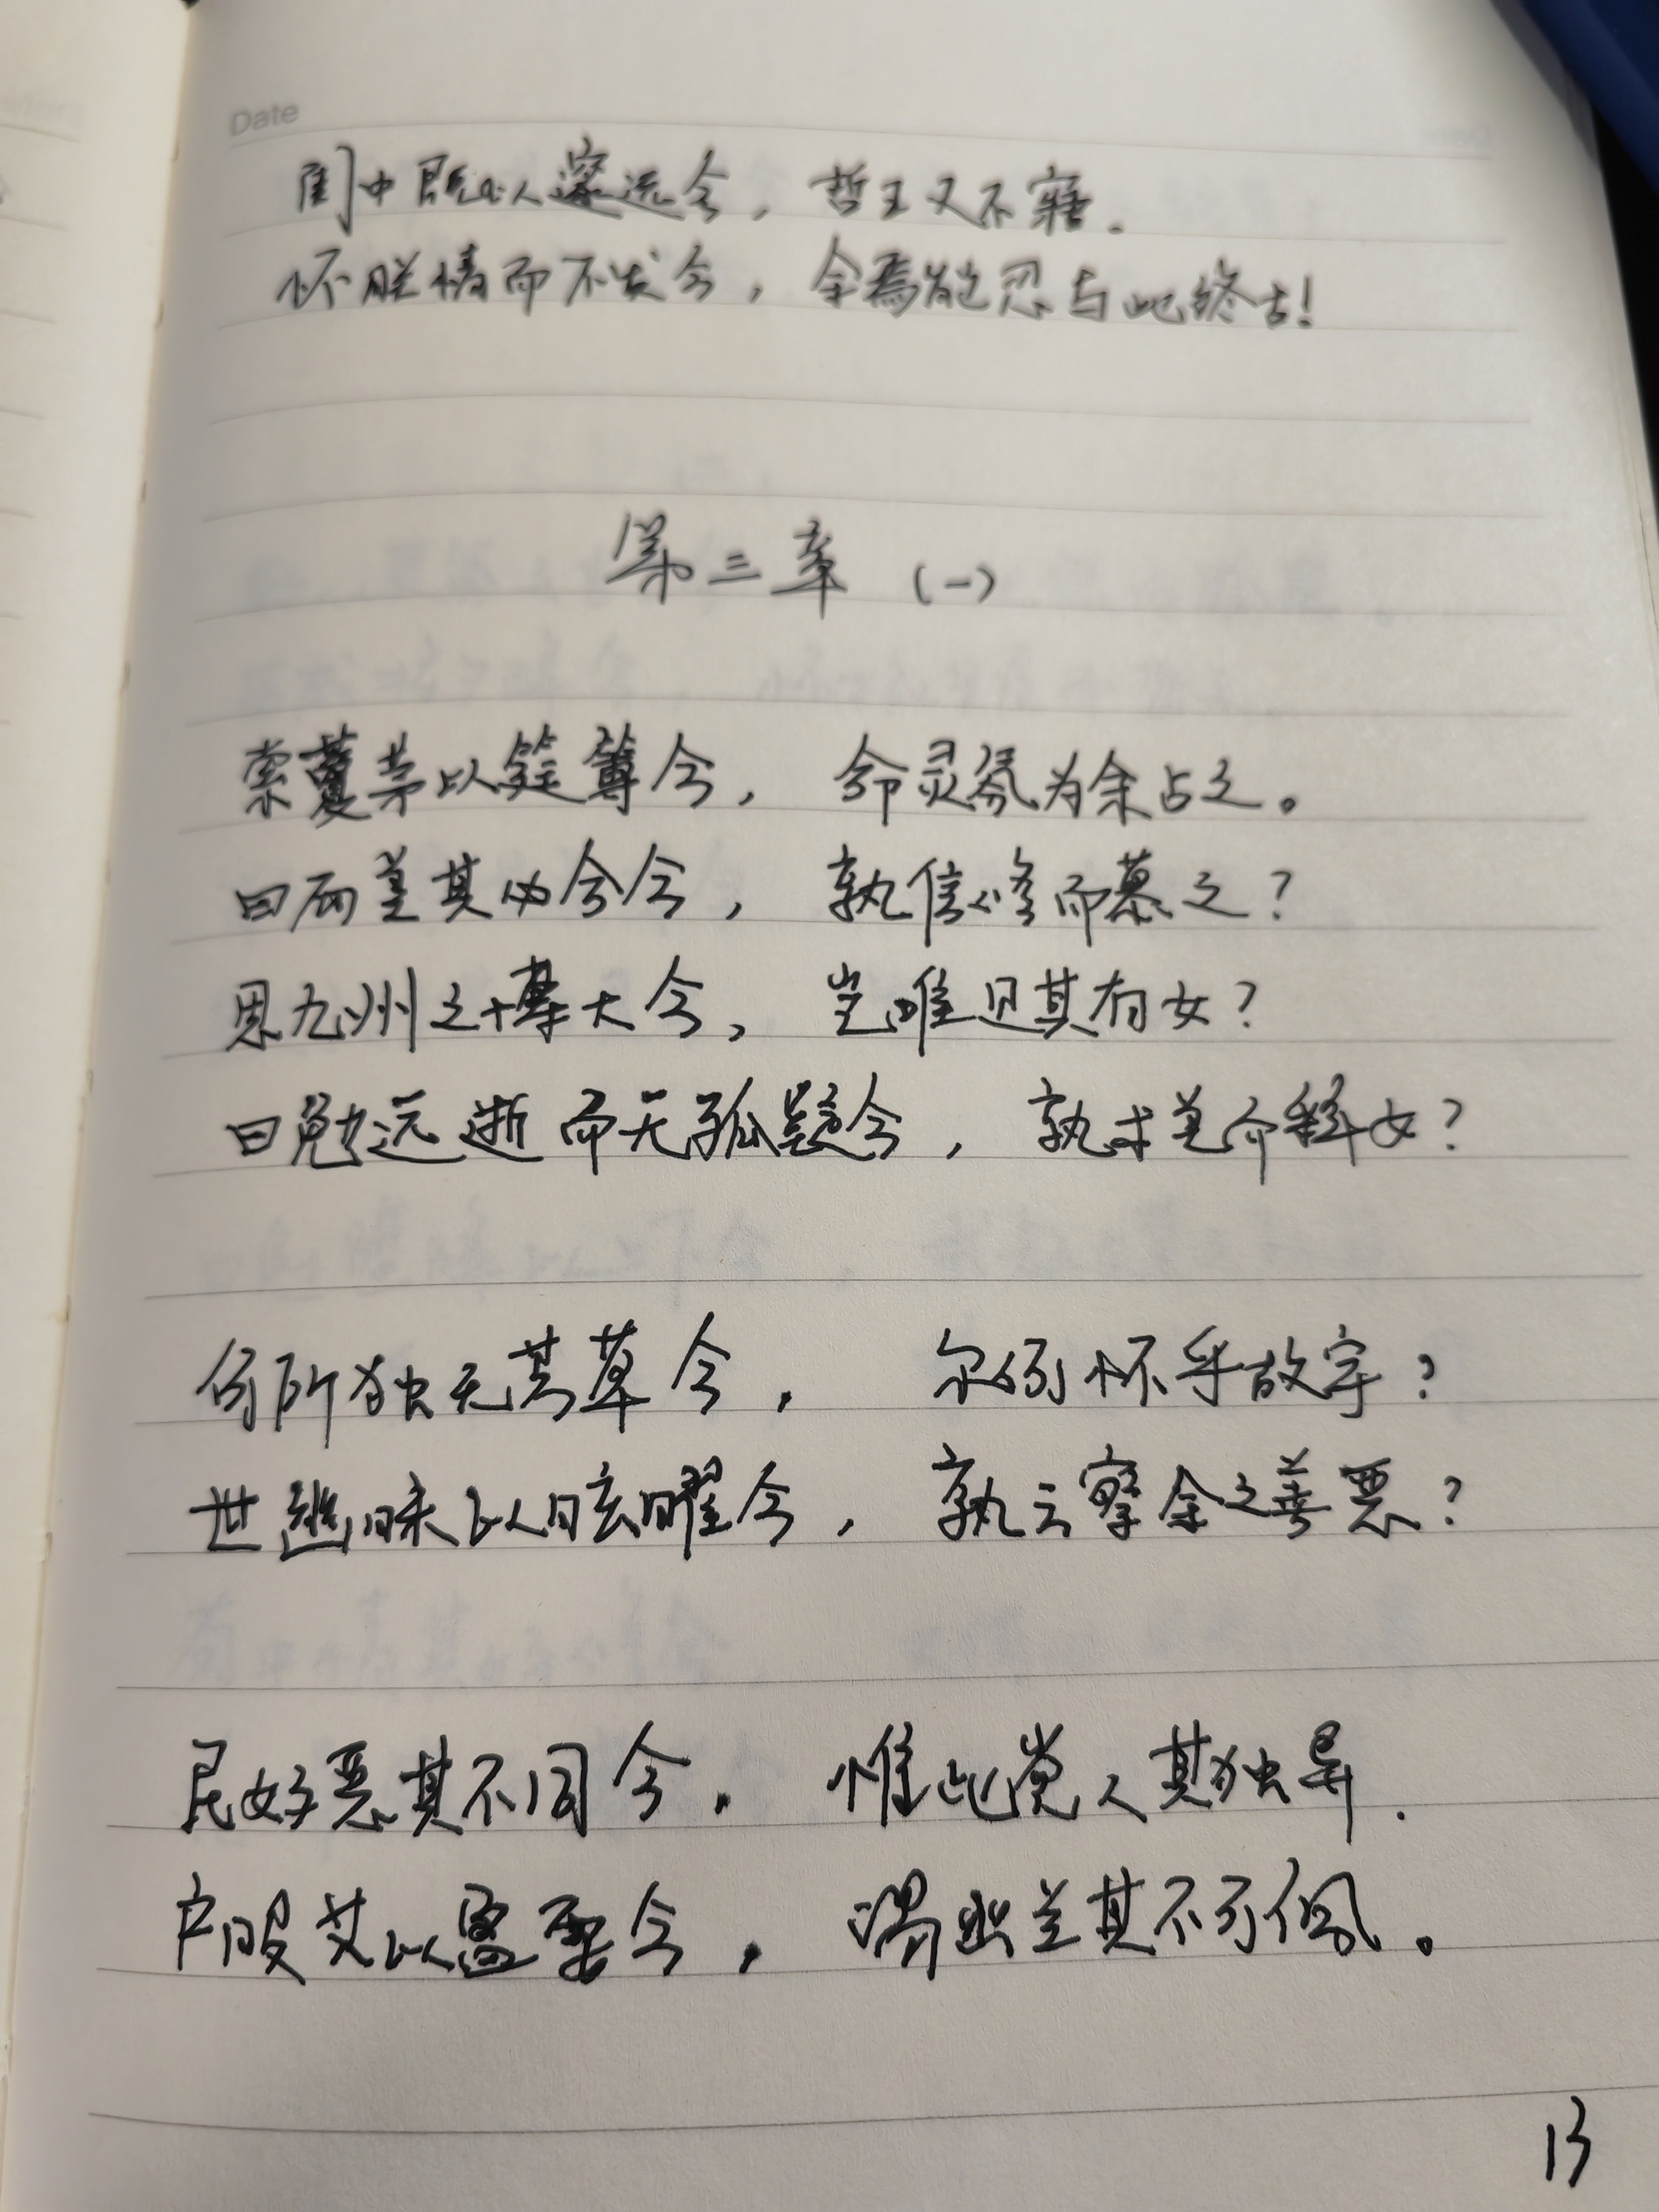 Date
闺中既以邃远兮，哲王又不寤.
怀朕情而不发兮，余焉能忍与此终古！
第三章（一）
索藑茅以筳篿兮，命灵氛为余占之。
曰两美其必合兮，孰信修而慕之？
思九州之博大兮，岂唯是其有女？
曰勉远逝而无狐疑兮，孰求美而释女？
何所独无芳草兮，尔何怀乎故宇？
世幽昧以眩曜兮，孰云察余之善恶？
民好恶其不同兮，惟此党人其独异.
户服艾以盈要兮，谓幽兰其不可佩。
13